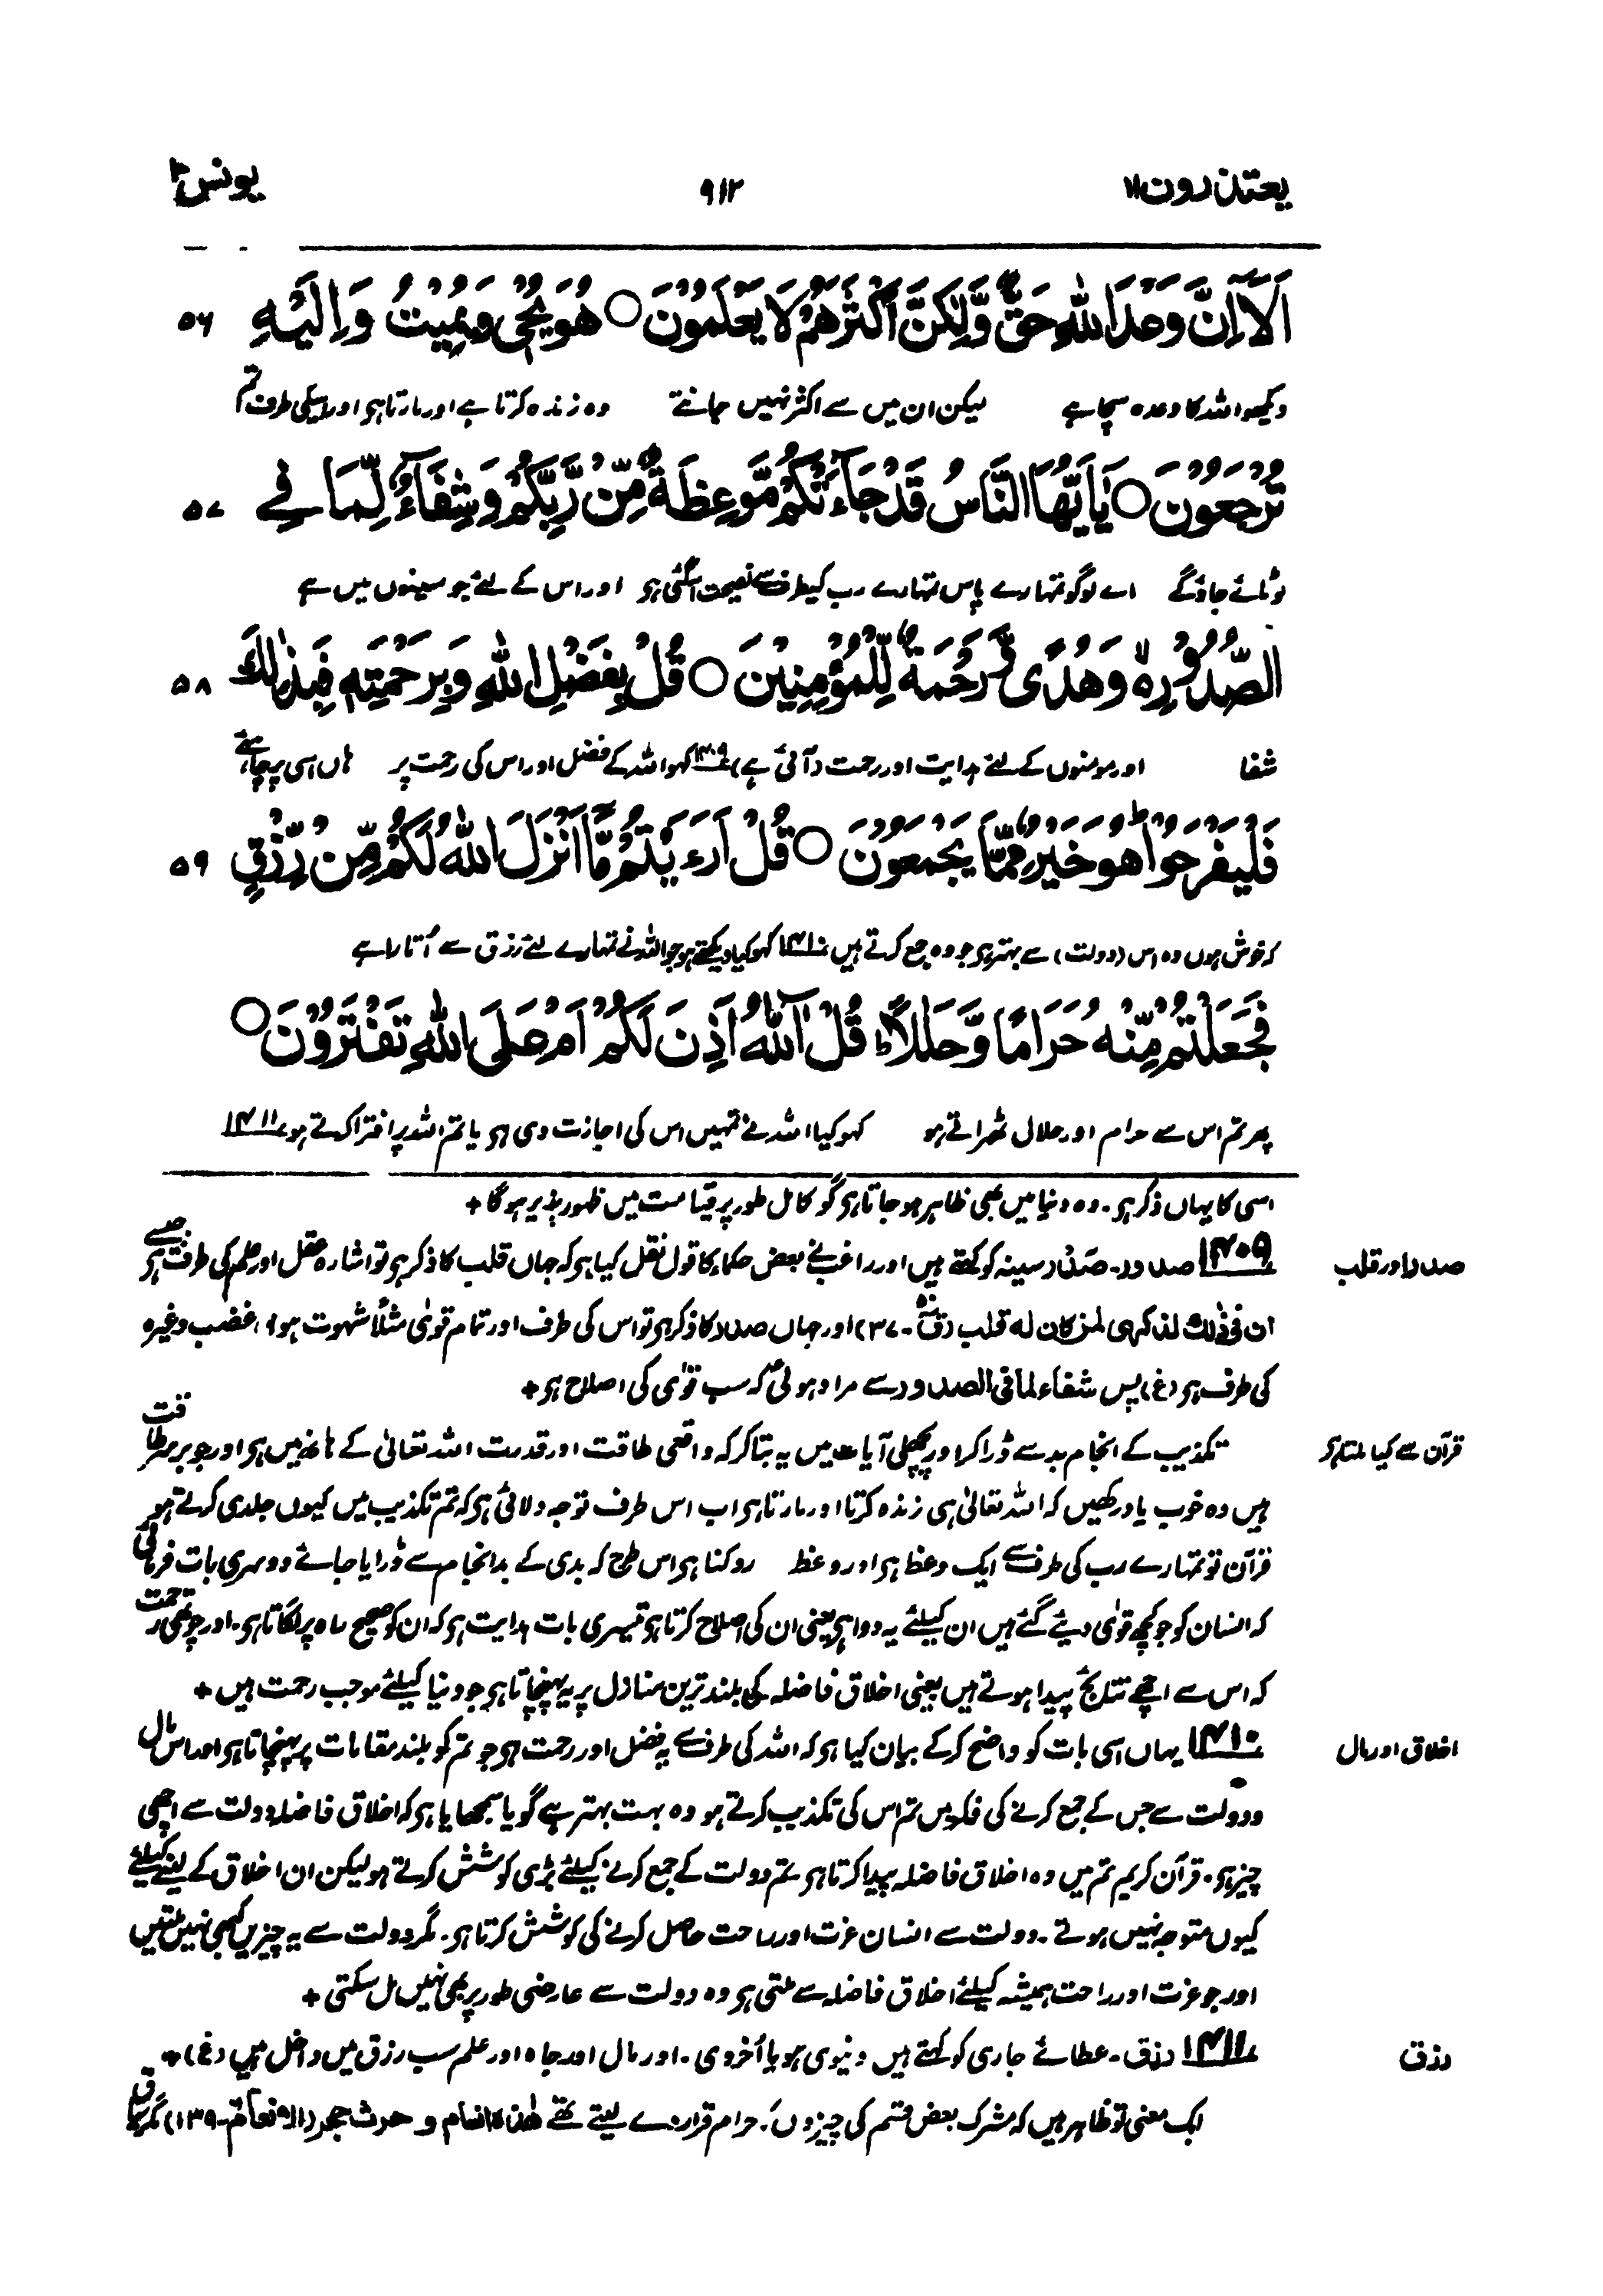 یعتذرون ۱۱ ۹۱۲ یونس ۱۰
اَلَاۤ اِنَّ وَعْدَ اللّٰهِ حَقٌّ وَّلٰكِنَّ اَكْثَرَهُمْ لَا يَعْلَمُوْنَ ○ هُوَ يُحْيٖ وَيُمِيْتُ وَاِلَيْهِ ۵۶
دیکھو اللہ کا وعدہ سچا ہے لیکن ان میں سے اکثر نہیں جانتے وہ زندہ کرتا ہے اور مارتا ہو اور اسیکی طرف تم
تُرْجَعُوْنَ ○ يٰۤاَيُّهَا النَّاسُ قَدْ جَآءَتْكُمْ مَّوْعِظَةٌ مِّنْ رَّبِّكُمْ وَشِفَآءٌ لِّمَا فِي ۵۷
لوٹائے جاؤ گے اے لوگو تمہارے پاس تمہارے رب کیطرف سے نصیحت آگئی ہو اور اس کے لئے جو سینوں میں ہے
الصُّدُوْرِ ۙ وَهُدًى وَّرَحْمَةٌ لِّلْمُؤْمِنِيْنَ ○ قُلْ بِفَضْلِ اللّٰهِ وَبِرَحْمَتِهٖ فَبِذٰلِكَ ۵۸
شفا اور مومنوں کے لئے ہدایت اور رحمت (آئی ہے) ۱۴۰۹ کہو اللہ کے فضل اور اس کی رحمت پر ہاں اسی پر چاہئے
فَلْيَفْرَحُوْا ؕ هُوَ خَيْرٌ مِّمَّا يَجْمَعُوْنَ ○ قُلْ اَرَءَيْتُمْ مَّاۤ اَنْزَلَ اللّٰهُ لَكُمْ مِّنْ رِّزْقٍ ۵۹
کہ خوش ہوں وہ اس (دولت) سے بہتر ہو جو وہ جمع کرتے ہیں ۱۴۱۰ کہو کیا دیکھتے ہو جو اللہ نے تمہارے لئے رزق سے اُتارا ہے
فَجَعَلْتُمْ مِّنْهُ حَرَامًا وَّحَلٰلًا ؕ قُلْ آٰللّٰهُ اَذِنَ لَكُمْ اَمْ عَلَى اللّٰهِ تَفْتَرُوْنَ ○
پھر تم اس سے حرام اور حلال ٹھراتے ہو کہو کیا اللہ نے تمہیں اس کی اجازت دی ہو یا تم اللہ پر افترا کرتے ہو ۱۴۱۱
اسی کا یہاں ذکر ہو۔ وہ دنیا میں بھی ظاہر ہو جاتا ہو گو کامل طور پر قیامت میں ظہور پذیر ہوگا +
صدر اور قلب
۱۴۰۹ صدور۔ صَدْر سینہ کو کہتے ہیں اور راغب نے بعض حکماء کا قول نقل کیا ہو کہ جہاں قلب کا ذکر ہو تو اشارہ عقل اور علم کی طرف ہو جیسے
ان فی ذٰلک لذکرٰی لمن کان له قلب (قٓ۔ ۳۷) اور جہاں صدر کا ذکر ہو تو اس کی طرف اور تمام قویٰ مثلاً شہوت ہوا، غضب وغیرہ
کی طرف ہو (غ) پس شفاء لما فی الصدور سے مراد ہوئی کہ سب قویٰ کی اصلاح ہو +
قرآن سے کیا ملتا ہو
تکذیب کے انجام بد سے ڈرا کر اور پچھلی آیات میں یہ بتا کر کہ واقعی طاقت اور قدرت اللہ تعالیٰ کے ہاتھ میں ہو اور جو برسر طاقت
ہیں وہ خوب یاد رکھیں کہ اللہ تعالیٰ ہی زندہ کرتا اور مارتا ہو اب اس طرف توجہ دلائی ہو کہ تم تکذیب میں کیوں جلدی کرتے ہو
قرآن تو تمہارے رب کی طرف سے ایک وعظ ہو اور وعظ روکنا ہو اس طرح کہ بدی کے بد انجام سے ڈرایا جائے دوسری بات فرمائی
کہ انسان کو جو کچھ قویٰ دیئے گئے ہیں ان کیلئے یہ دوا ہو یعنی ان کی اصلاح کرتا ہو تیسری بات ہدایت ہو کہ ان کو صحیح راہ پر لگاتا ہو۔ اور چوتھی رحمت
کہ اس سے اچھے نتائج پیدا ہوتے ہیں یعنی اخلاق فاضلہ کی بلند ترین منازل پر یہ پہنچاتا ہو جو دنیا کیلئے موجب رحمت ہیں +
اخلاق اور مال
۱۴۱۰ یہاں اسی بات کو واضح کر کے بیان کیا ہو کہ اللہ کی طرف سے یہ فضل اور رحمت ہو جو تم کو بلند مقامات پر پہنچاتا ہو اور اس مال
و دولت سے جس کے جمع کرنے کی فکر میں تم اس کی تکذیب کرتے ہو وہ بہت بہتر ہے گویا سمجھایا ہو کہ اخلاق فاضلہ دولت سے اچھی
چیز ہو۔ قرآن کریم تم میں وہ اخلاق فاضلہ پیدا کرتا ہو تم دولت کے جمع کرنے کیلئے بڑی کوشش کرتے ہو لیکن ان اخلاق کے لینے کیلئے
کیوں متوجہ نہیں ہوتے۔ دولت سے انسان عزت اور راحت حاصل کرنے کی کوشش کرتا ہو۔ مگر دولت سے یہ چیزیں کبھی نہیں ملتیں
اور جو عزت اور راحت ہمیشہ کیلئے اخلاق فاضلہ سے ملتی ہو وہ دولت سے عارضی طور پر بھی نہیں مل سکتی +
رزق
۱۴۱۱ رزق۔ عطائے جاری کو کہتے ہیں دنیوی ہو یا اُخروی۔ اور مال اور جاہ اور علم سب رزق میں داخل ہیں (غ) +
ایک معنی تو ظاہر ہیں کہ مشرک بعض قسم کی چیزوں کو حرام قرار دے لیتے تھے هٰذه انعام و حرث حجر (الانعام۔ ۱۳۹) مگر